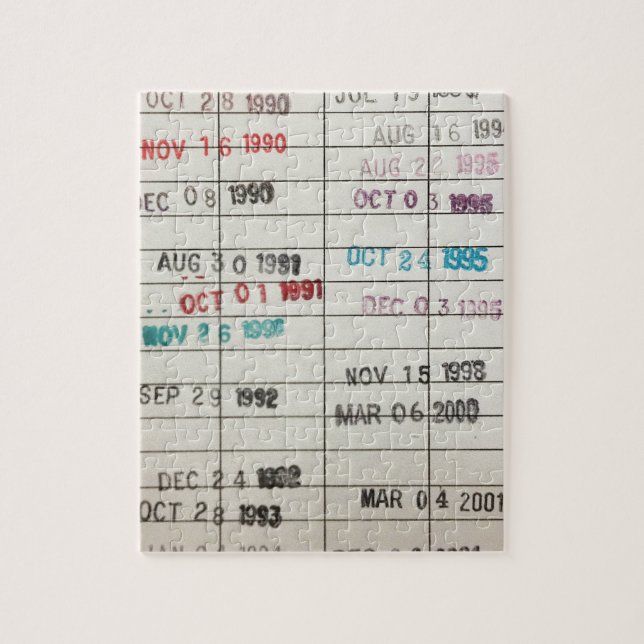 OCT 28 1990
NOV 16 1990
DEC 08 1990
AUG 30 1991
OCT 01 1991
NOV 26 199
SEP 29 1992
DEC 24 1992
OCT 28 1993
JAN 04 1994
JUL 19
AUG 16 199
AUG 22 1995
OCT 03 1995
OCT 24 1995
DEC 03 1995
NOV 15 1998
MAR 06 2000
MAR 04 2001
DEC